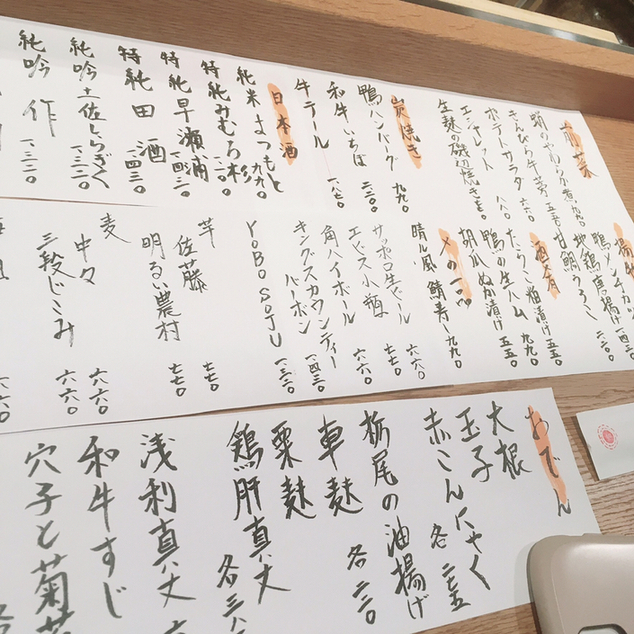 前菜
きんぴら牛蒡 五五〇
ポテトサラダ 六六〇
エシャレット 八八〇
生麩の磯辺焼き 七七〇
炭焼き
鴨ハンバーグ 九九〇
和牛いちぼ 二二〇〇
牛テール 一八七〇
日本酒
純米 まつもと 九九〇
特純 みむろ杉
特純 早瀬浦
特純 田酒 一四三〇
純吟 土佐しらぎく
純吟 作 一三二〇
揚物
鴨メンチカツ
地鶏唐揚げ
甘鯛うろこ
酒肴
たらこ粕漬け 五五〇
鴨の生ハム 九九〇
胡瓜ぬか漬け 五五〇
〆の一品
晴ル風 鯖寿し 九九〇
サッポロ生ビール 六六〇
エビス小瓶 七七〇
角ハイボール 六六〇
キングスカウンティー バーボン 一四三〇
YOBO SOJU 一三二〇
芋
佐藤 七七〇
明るい農村 七七〇
麦
中々 六六〇
三段じこみ 六六〇
六六〇
おでん
大根
玉子
赤こんにゃく 各 二七五
栃尾の油揚げ
車麩 各 二二〇
粟麩
鶏肝真丈 各 三八
浅利真丈
和牛すじ
穴子と菊